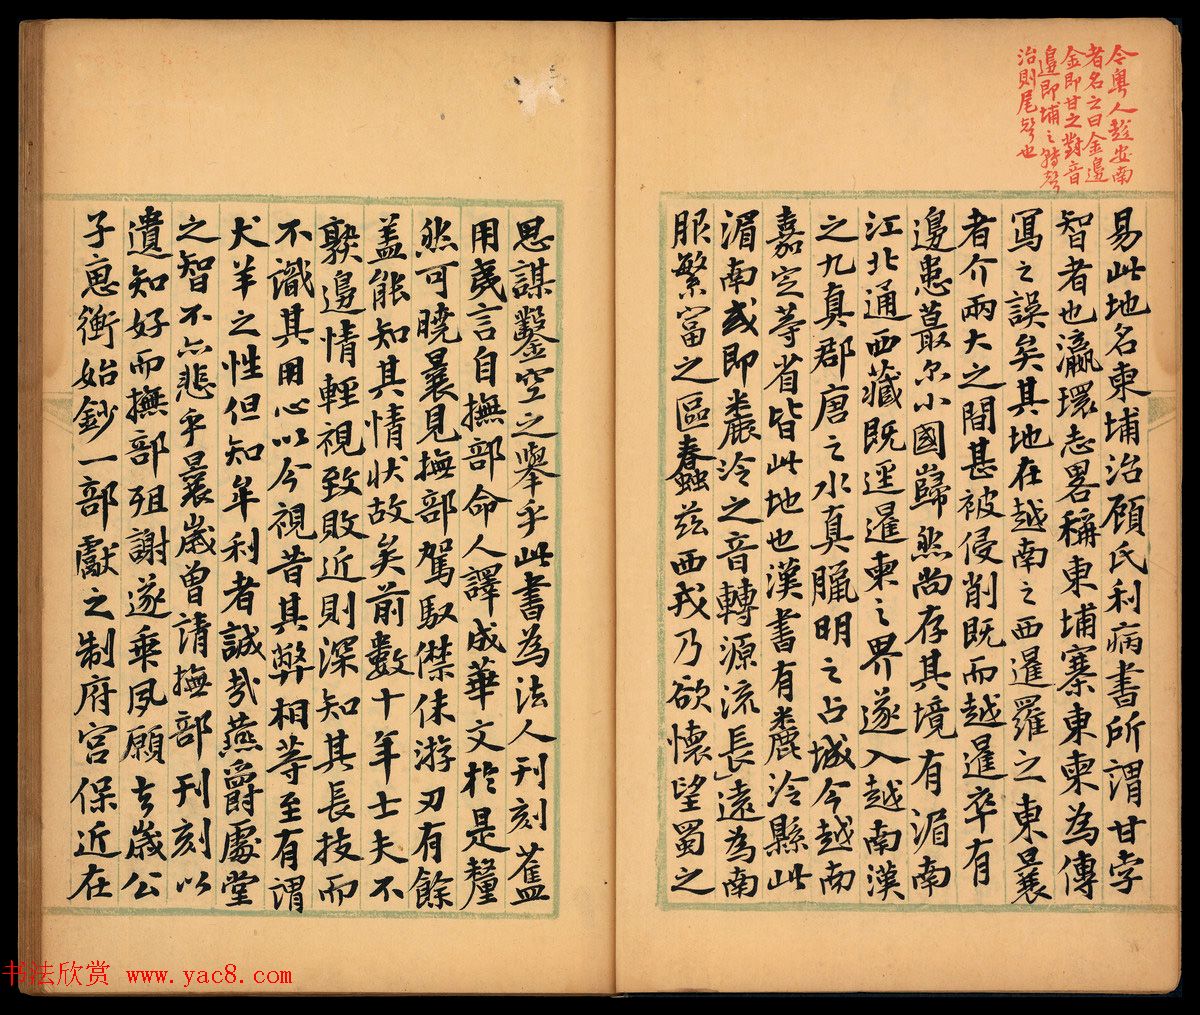 今粵人趍安南
者名之曰金邊
金即甘之對音
邊即埔之轉聲
治則尾聲也
易此地名柬埔治顧氏利病書所謂甘孛
智者也瀛環志畧稱東埔寨東柬為傳
寫之誤矣其地在越南之西暹羅之東曩
者介兩大之間甚被侵削既而越暹卒有
邊患蕞尔小國巋然尚存其境有湄南
江北通西藏既逕暹柬之界遂入越南漢
之九真郡唐之水真臘明之占城今越南
嘉定等省皆此地也漢書有麊泠縣此
湄南或即麊泠之音轉源流長遠為南
服繁富之區蠢茲西戎乃欲懷望蜀之
思謀鑿空之舉乎此書為法人刊刻舊
用夷言自撫部命人譯成華文於是釐
然可曉曩見撫部駕馭傑佅游刃有餘
盖能知其情狀故矣前數十年士夫不
孰邊情輕視致敗近則深知其長技而
不識其用心以今視昔其弊相等至有謂
犬羊之性但知牟利者誠哉燕爵處堂
之智不亦悲乎曩歲曾請撫部刊刻以
遺知好而撫部殂謝遂乗夙願去歲公
子惠衡始鈔一部獻之制府宮保近在
书法欣赏 www.yac8.com